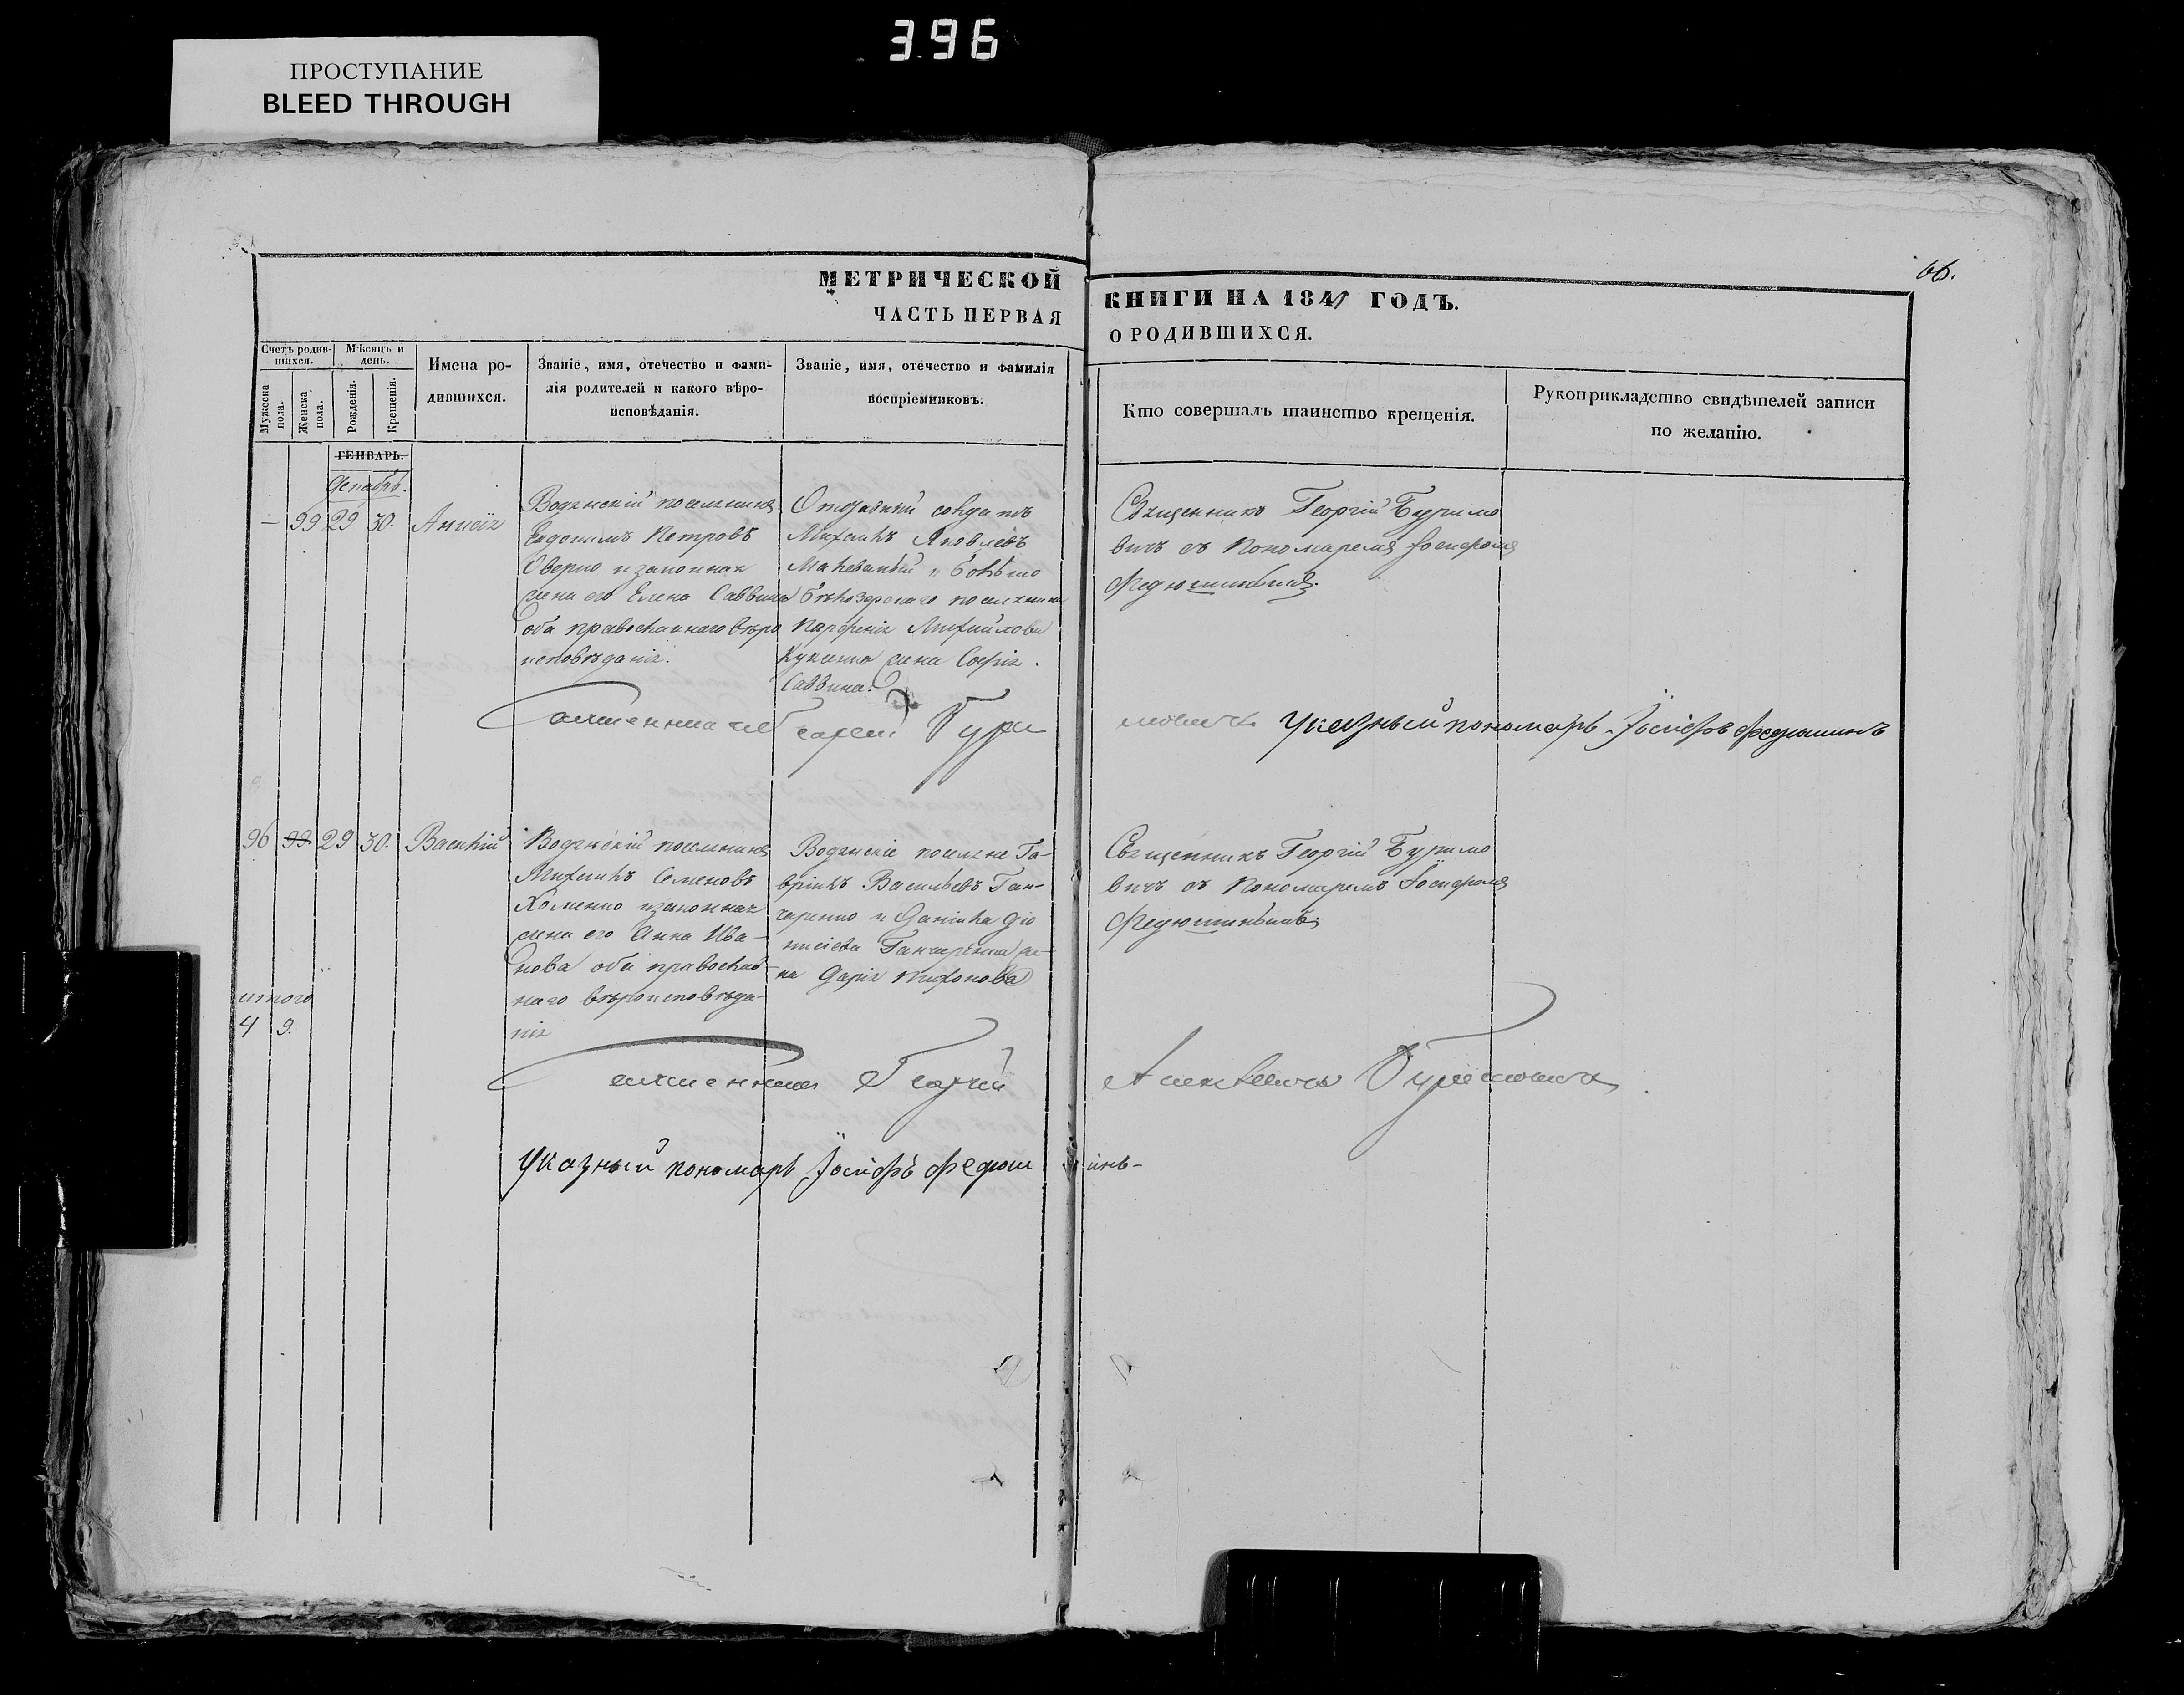 396
ПРОСТУПАНИЕ
BLEED THROUGH
66.
МЕТРИЧЕСКОЙ
ЧАСТЬ ПЕРВАЯ
КНИГИ НА 1841 ГОДЪ.
О РОДИВШИХСЯ.
Счетъ родив-
шихся.
Мѣсяцъ и
день.
Мужеска
пола.
Женска
пола.
Рожденія.
Крещенія.
Имена ро-
дившихся.
Званіе, имя, отечество и фами-
лія родителей и какого вѣро-
исповѣданія.
Званіе, имя, отечество и фамилія
воспріемниковъ.
Кто совершалъ таинство крещенія.
Рукоприкладство свидѣтелей записи
по желанію.
ГЕНВАРЬ.
Декабрь.
— 99 29 30. Анисія
Водянскій поселянинъ
Евдокимъ Петровъ
Оверко и законная
жена его Елена Саввина
оба православнаго вѣро
исповѣданія.
Отставный солдатъ
Михаилъ Яковлевъ
Парфенія Михайлова
жена Софія
Саввина.
Священникъ Георгій Буримо
вичъ съ Пономаремъ Іосифомъ
Федюшинымъ.
Священникъ Георгій Бури
мовичъ Указный пономарь Іосифъ Федюшинъ
96 99 29 30. Василій
Водянскій поселянинъ
Михаилъ Семеновъ
Хоменко и законная
жена его Анна Ива-
нова оба православ-
наго вѣроисповѣда-
нія
Водянскіе поселяне Га-
вріилъ Васильевъ Ган-
чаренко и Даніила Діо
нисіева Ганчаренка же-
на Дарія Тихонова
Священникъ Георгій Буримо
вичъ съ Пономаремъ Іосифомъ
Федюшинымъ.
итого
4 9.
Священникъ Георгій
Алексѣевичъ Буримовичъ
Указный пономарь Іосифъ Федюш
инъ-